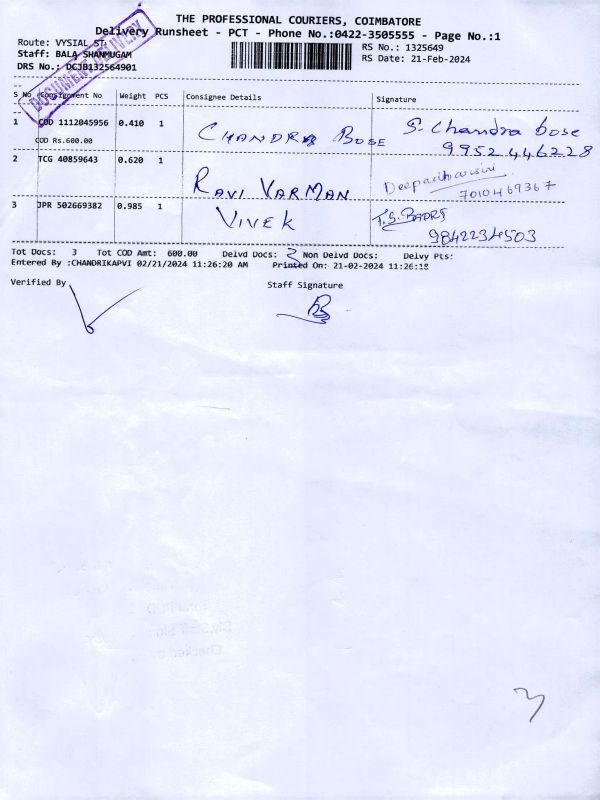 THE PROFESSIONAL COURIERS, COIMBATORE
Delivery Runsheet - PCT - Phone No.:0422-3505555 - Page No.:1
Route: VYSIAL ST
RS No.: 1325649
Staff: BALA SHANMUGAM
RS Date: 21-Feb-2024
DRS No.: DCJB132564901
DOCUMENT DELIVERY
S No Consignment No Weight PCS Consignee Details Signature
1 COD 1112045956 0.410 1 CHANDRA BOSE S. Chandra bose
COD Rs.600.00 9952446228
2 TCG 40859643 0.620 1 RAVI VARMAN
7010469367
3 JPR 502669382 0.985 1 VIVEK T.S. BADRI
9842234503
Tot Docs: 3 Tot COD Amt: 600.00 Delvd Docs: 3 Non Delvd Docs: Delvy Pts:
Entered By :CHANDRIKAPVI 02/21/2024 11:26:20 AM Printed On: 21-02-2024 11:26:18
Verified By Staff Signature